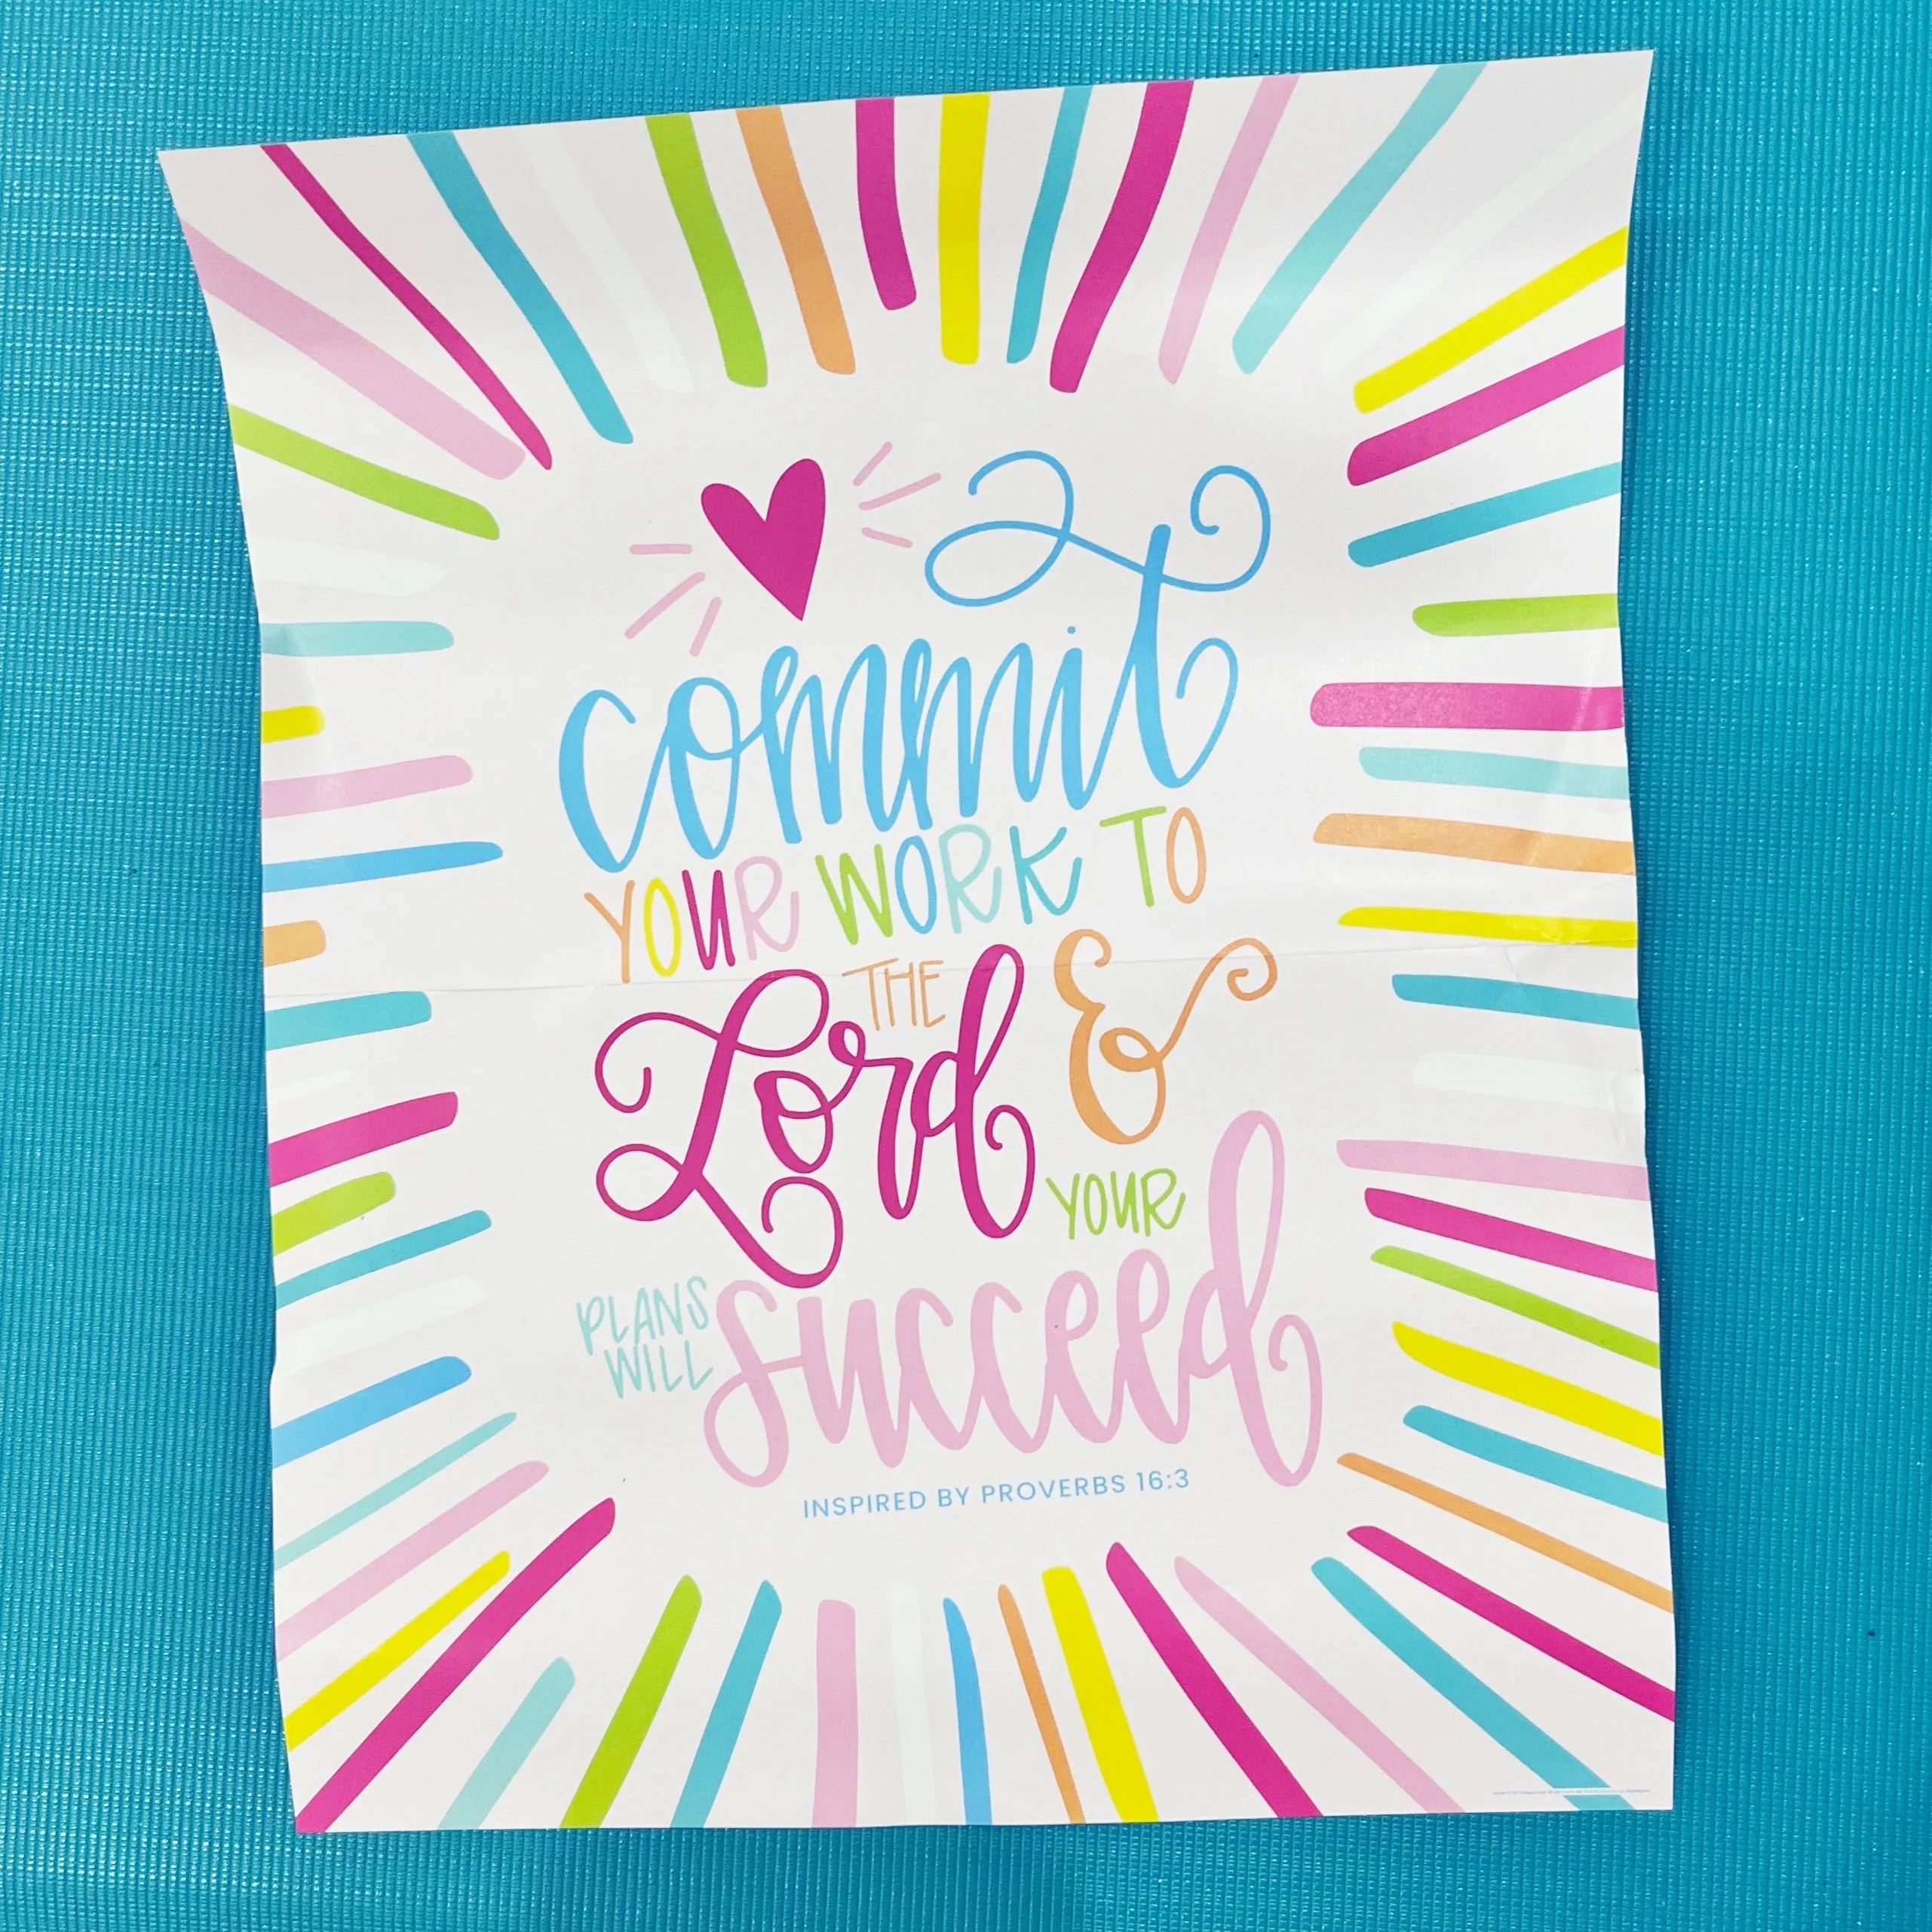 commit
YOUR WORK TO
THE
Lord &
YOUR
PLANS
WILL
succeed
INSPIRED BY PROVERBS 16:3